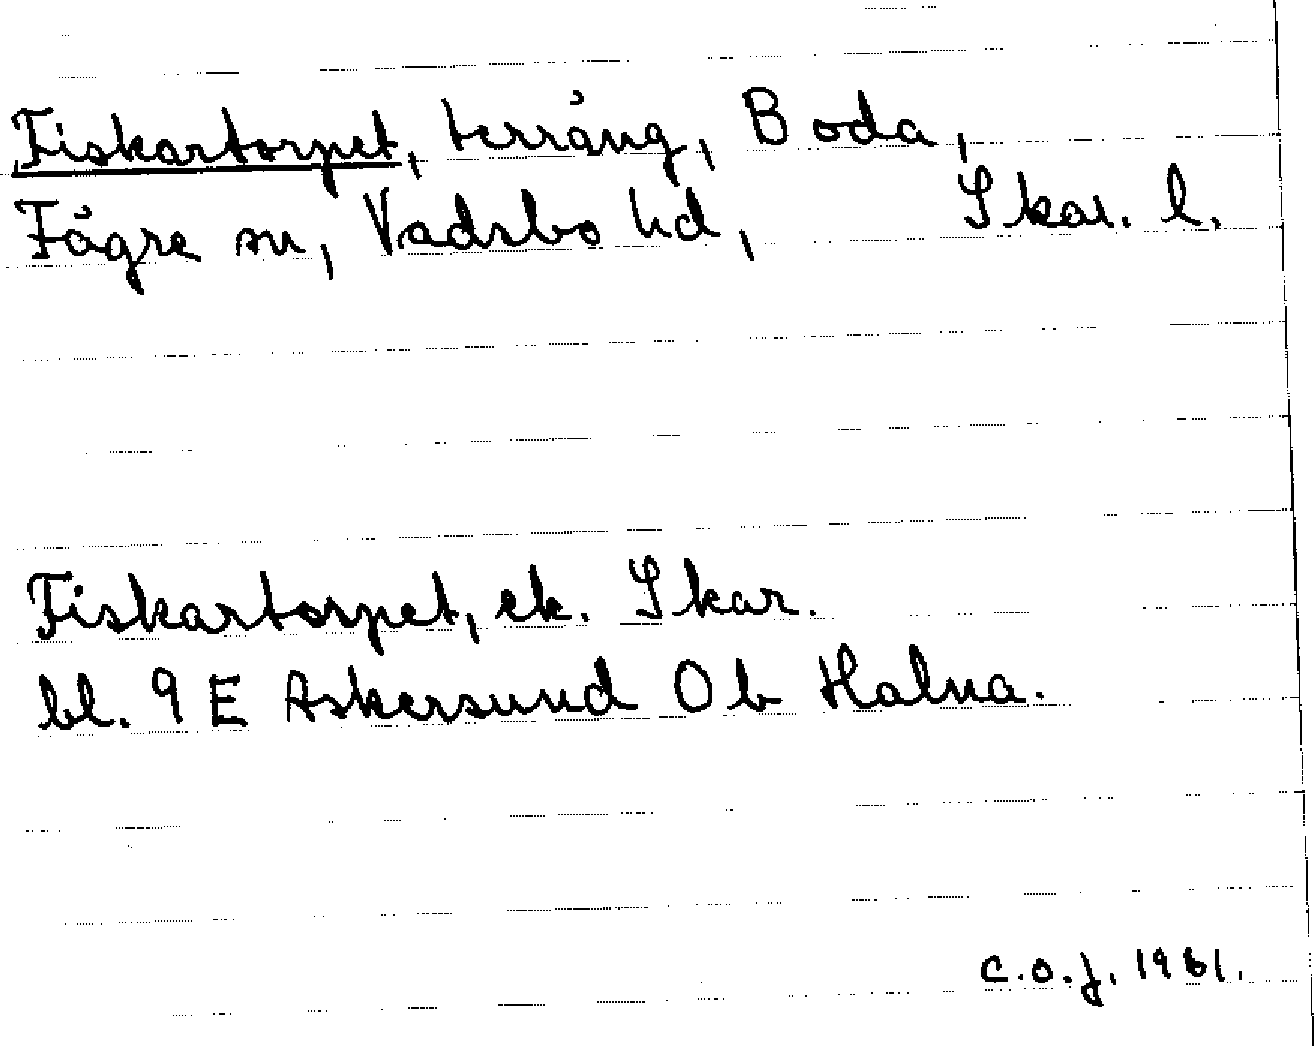 Fiskartorpet, terräng, Boda,
Fägre sn, Vadsbo hd, Skar. l.
Fiskartorpet, ek. Skar.
bl. 9 E Askersund 0 b Halna.
C.O.J. 1961.